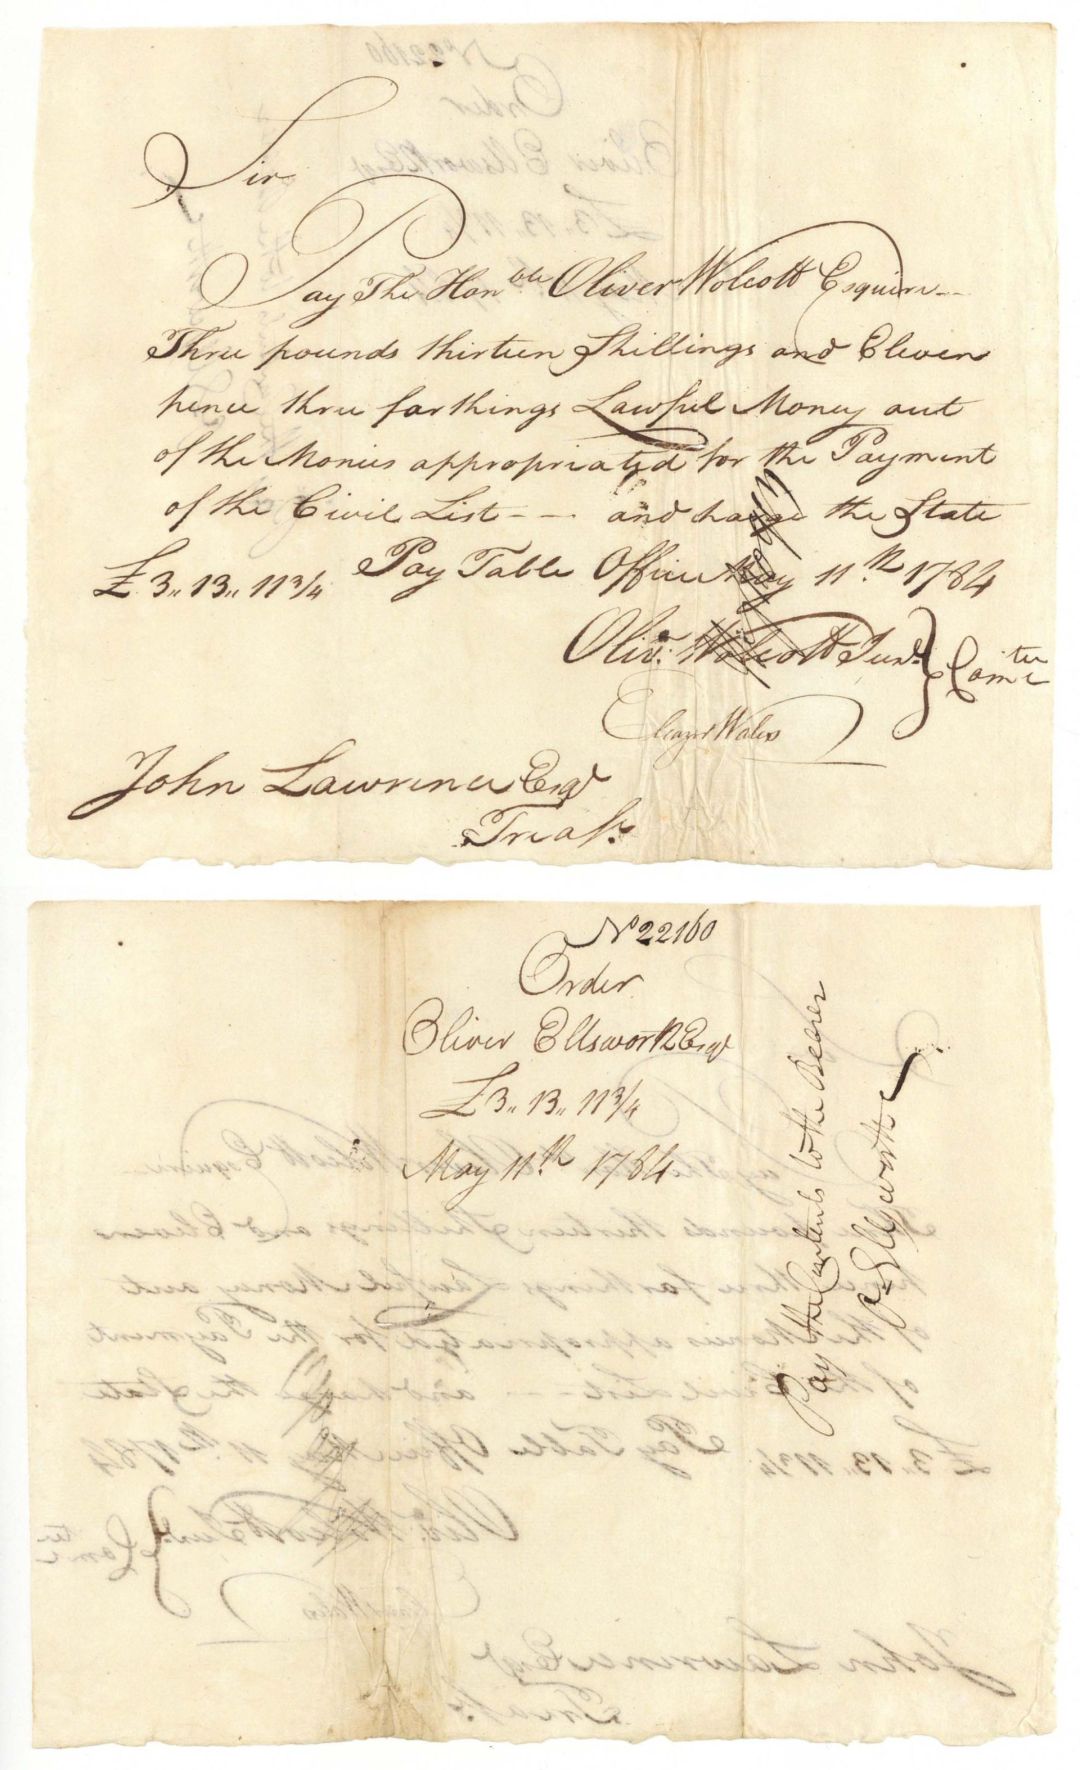 Sir
Pay The Honble Oliver Wolcott Esquire--
Three pounds thirteen Shillings and Eleven
pence three farthings Lawful Money out
of the Monies appropriated for the Payment
of the Civil List-- - and charge the State
£3,, 13,, 11 3/4 Pay Table Office May 11th 1784
Olivr. Wolcott Junr. } Comtee
Eleazer Wales
John Lawrence Esqr
Treasr.
No 22160
Order
Oliver Ellsworth Esqr
£3,, 13,, 11 3/4
May 11th 1784
Pay the Contents to the Bearer
Or Ellsworth